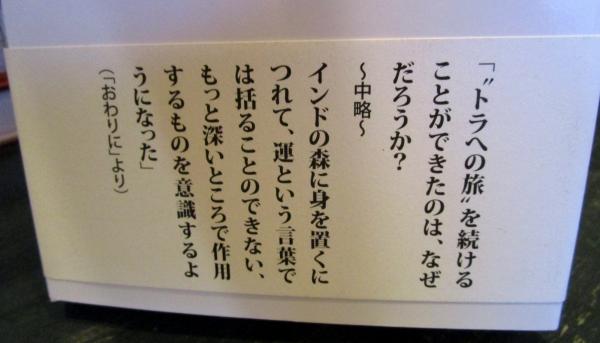 「〝トラへの旅〟を続ける
ことができたのは、なぜ
だろうか?
〜中略〜
インドの森に身を置くに
つれて、運という言葉で
は括ることのできない、
もっと深いところで作用
するものを意識するよ
うになった」
(「おわりに」より)